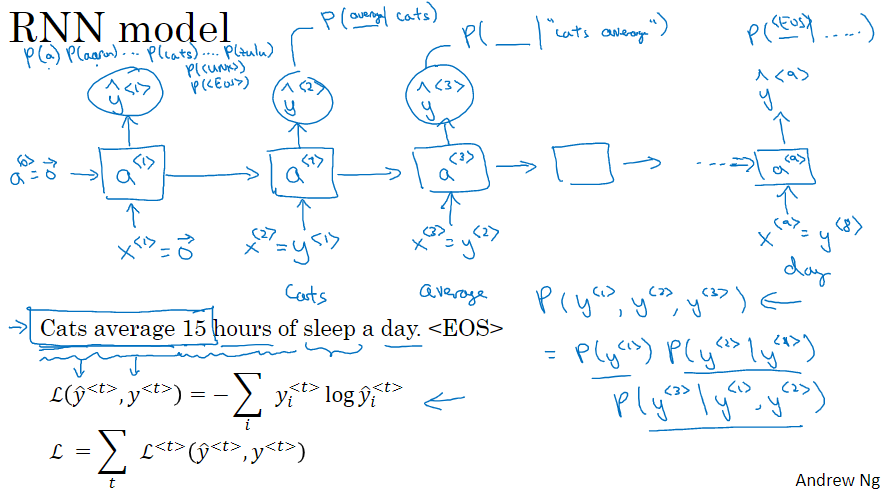 RNN model
P(a) P(aaron) ... P(cats) .... P(zulu)
P(<UNK>)
P(<EOS>)
P(average | cats)
P( ___ | "cats average")
P(<EOS> | .....)
ŷ<1> ŷ<2> ŷ<3> ŷ<9>
a<0> = 0⃗ → a<1> → a<2> → a<3> → → .... → a<9>
x<1> = 0⃗ x<2> = y<1> x<3> = y<2> x<9> = y<8>
Cats average day
→ Cats average 15 hours of sleep a day. <EOS>
ℒ(ŷ<t>, y<t>) = −∑i yi<t> log ŷi<t> ←
ℒ = ∑t ℒ<t>(ŷ<t>, y<t>)
P(y<1>, y<2>, y<3>) ←
= P(y<1>) P(y<2> | y<1>)
P(y<3> | y<1>, y<2>)
Andrew Ng